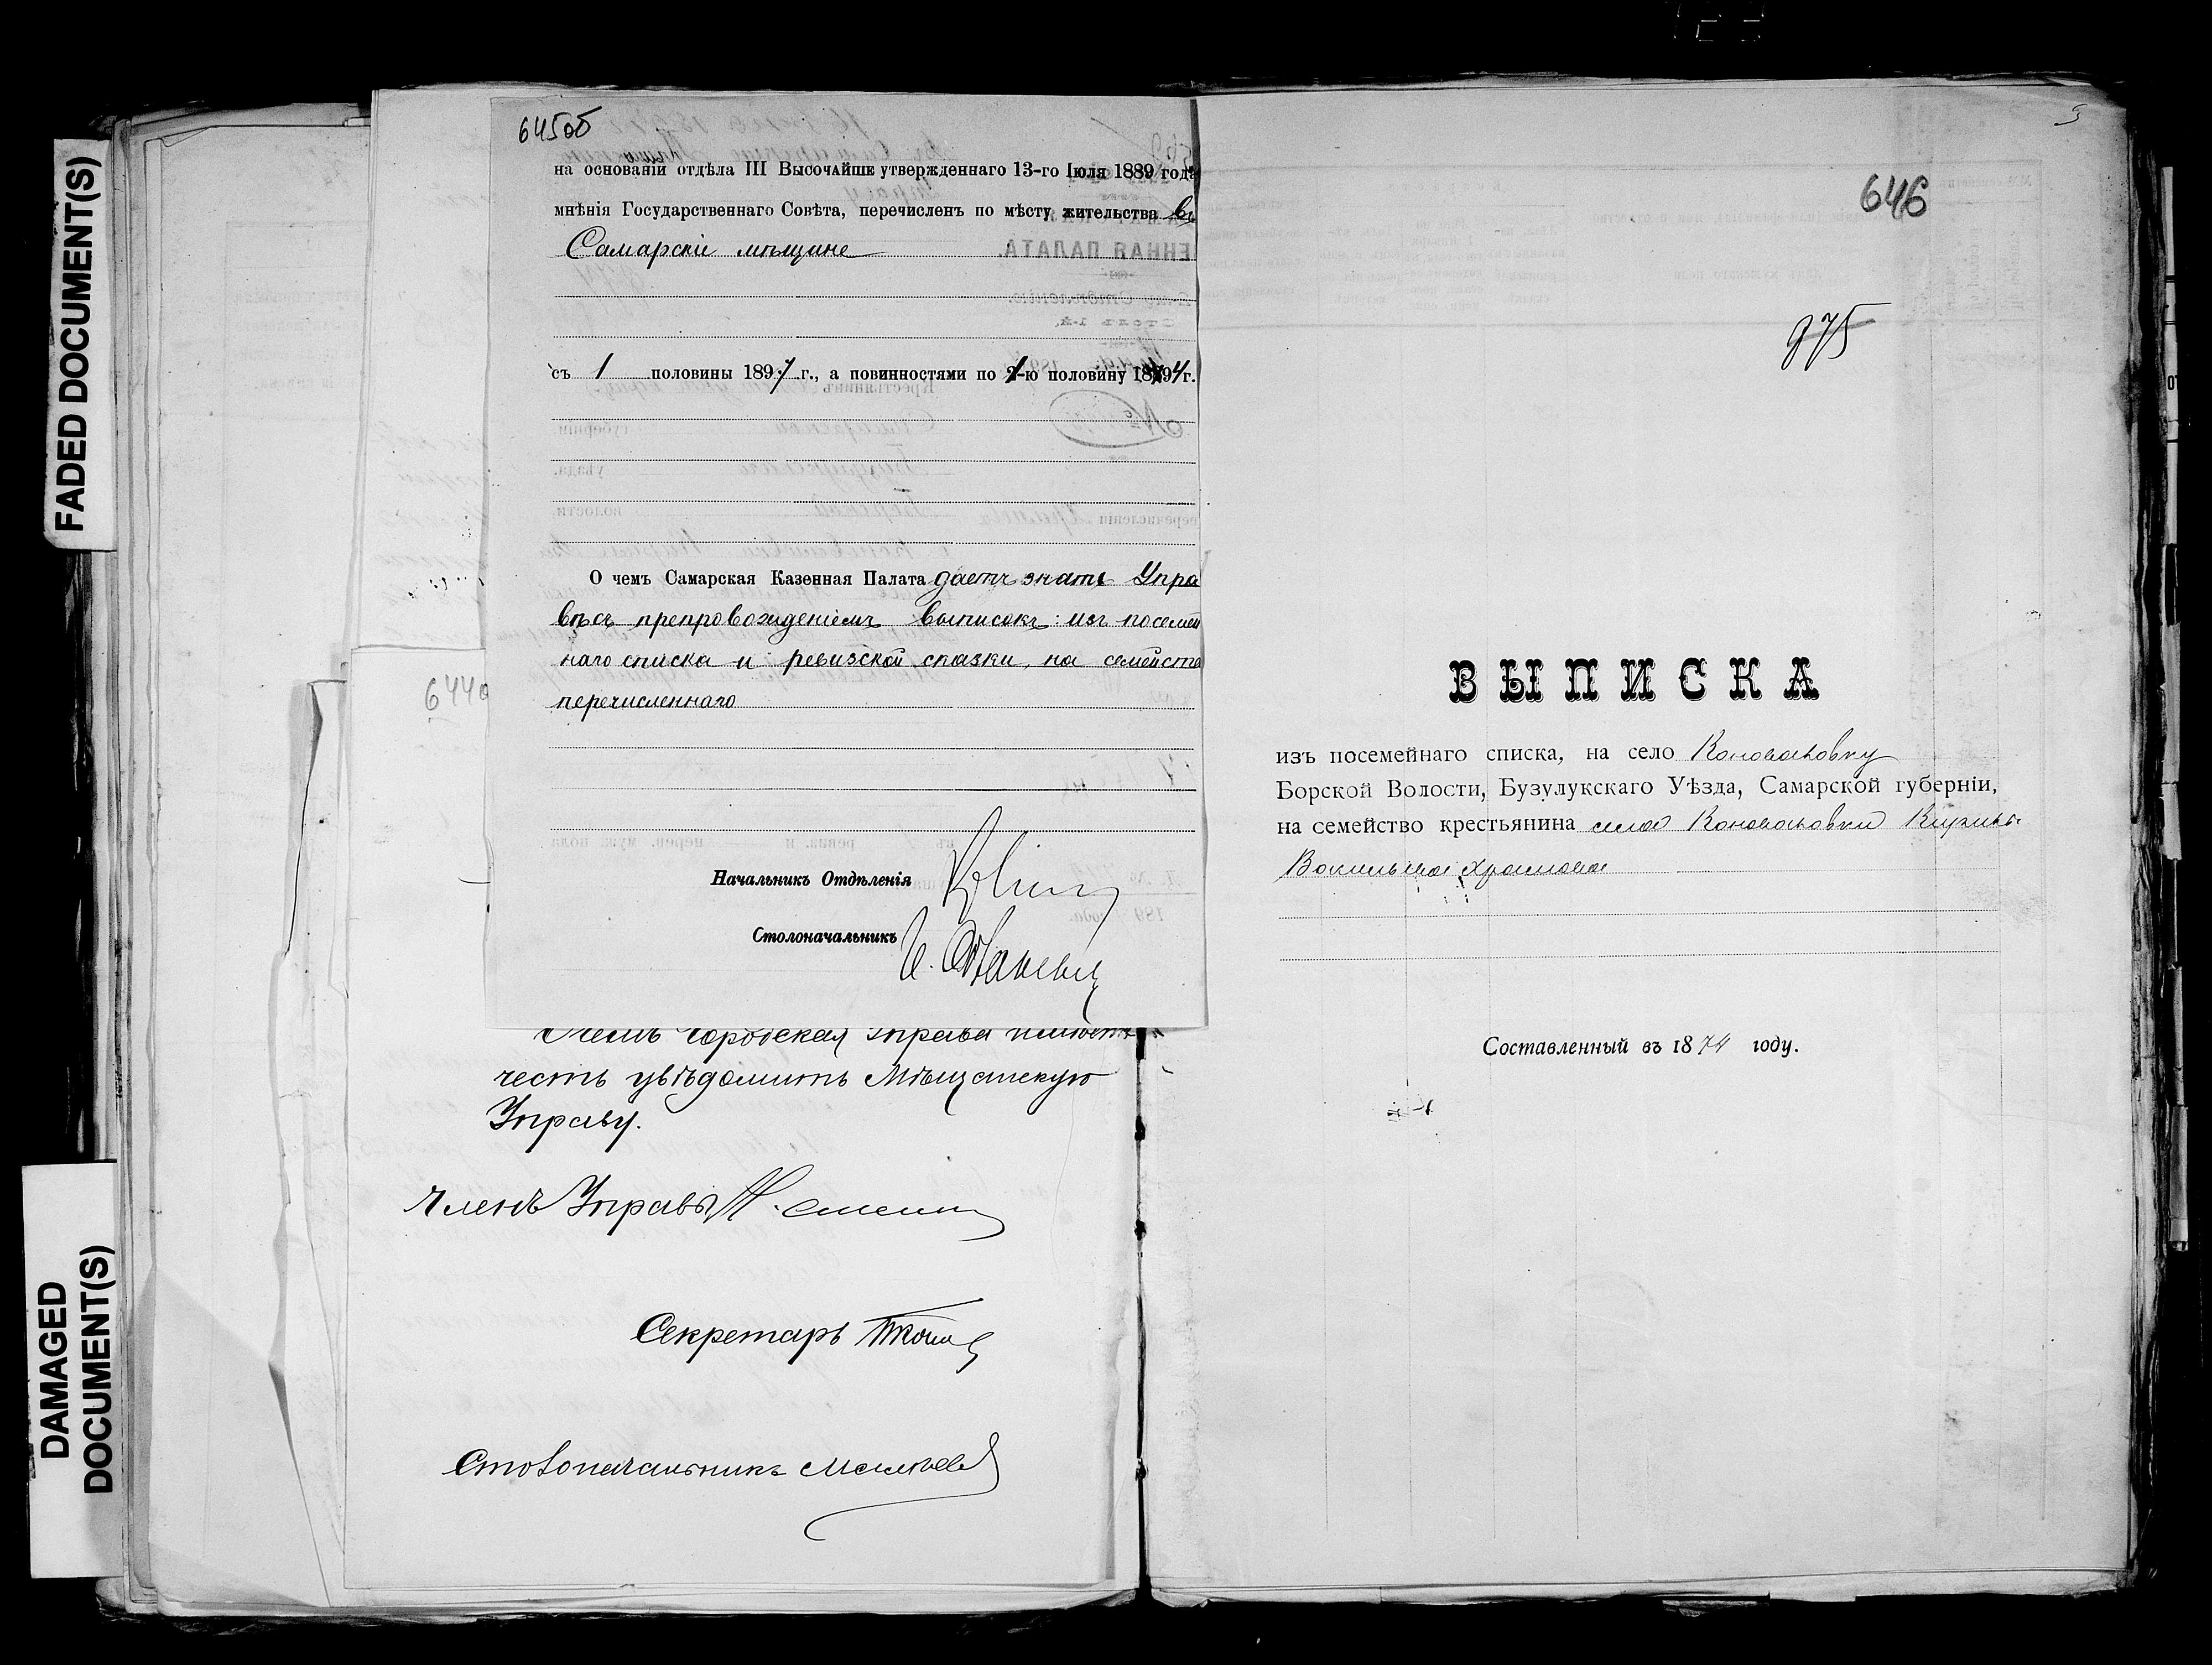 FADED DOCUMENT(S)
DAMAGED
DOCUMENT(S)
645об
на основаніи отдѣла III Высочайше утвержденнаго 13-го Іюля 1889 года
мнѣнія Государственнаго Совѣта, перечисленъ по мѣсту жительства въ
Самарскіе мѣщане
съ 1 половины 1897 г., а повинностями по 1-ю половину 1894 г.
О чемъ Самарская Казенная Палата даетъ знать Упра
вѣ съ препровожденіемъ выписокъ: изъ посемей
наго списка и ревизской сказки, на семейство
перечисленнаго
Начальникъ Отдѣленія
Столоначальникъ
644о
О чемъ Городская Управа имѣетъ
честь увѣдомить Мѣщанскую
Управу.
Членъ Управы
Секретарь
Столоначальникъ
646
975
ВЫПИСКА
изъ посемейнаго списка, на село Коноваловку
Борской Волости, Бузулукскаго Уѣзда, Самарской губерніи,
на семейство крестьянина села Коноваловки Кузьмы
Васильева Храмова
Составленный въ 1874 году.